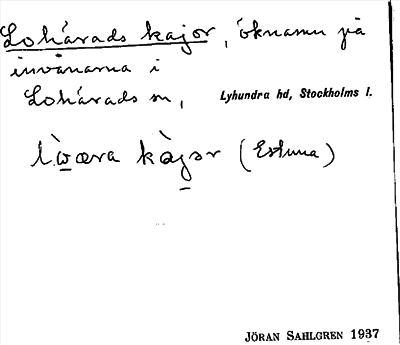 Lohärads kajor, öknamn på
invånarna i
Lohärads sn, Lyhundra hd, Stockholms l.
kàjər (Estuna)
JÖRAN SAHLGREN 1937